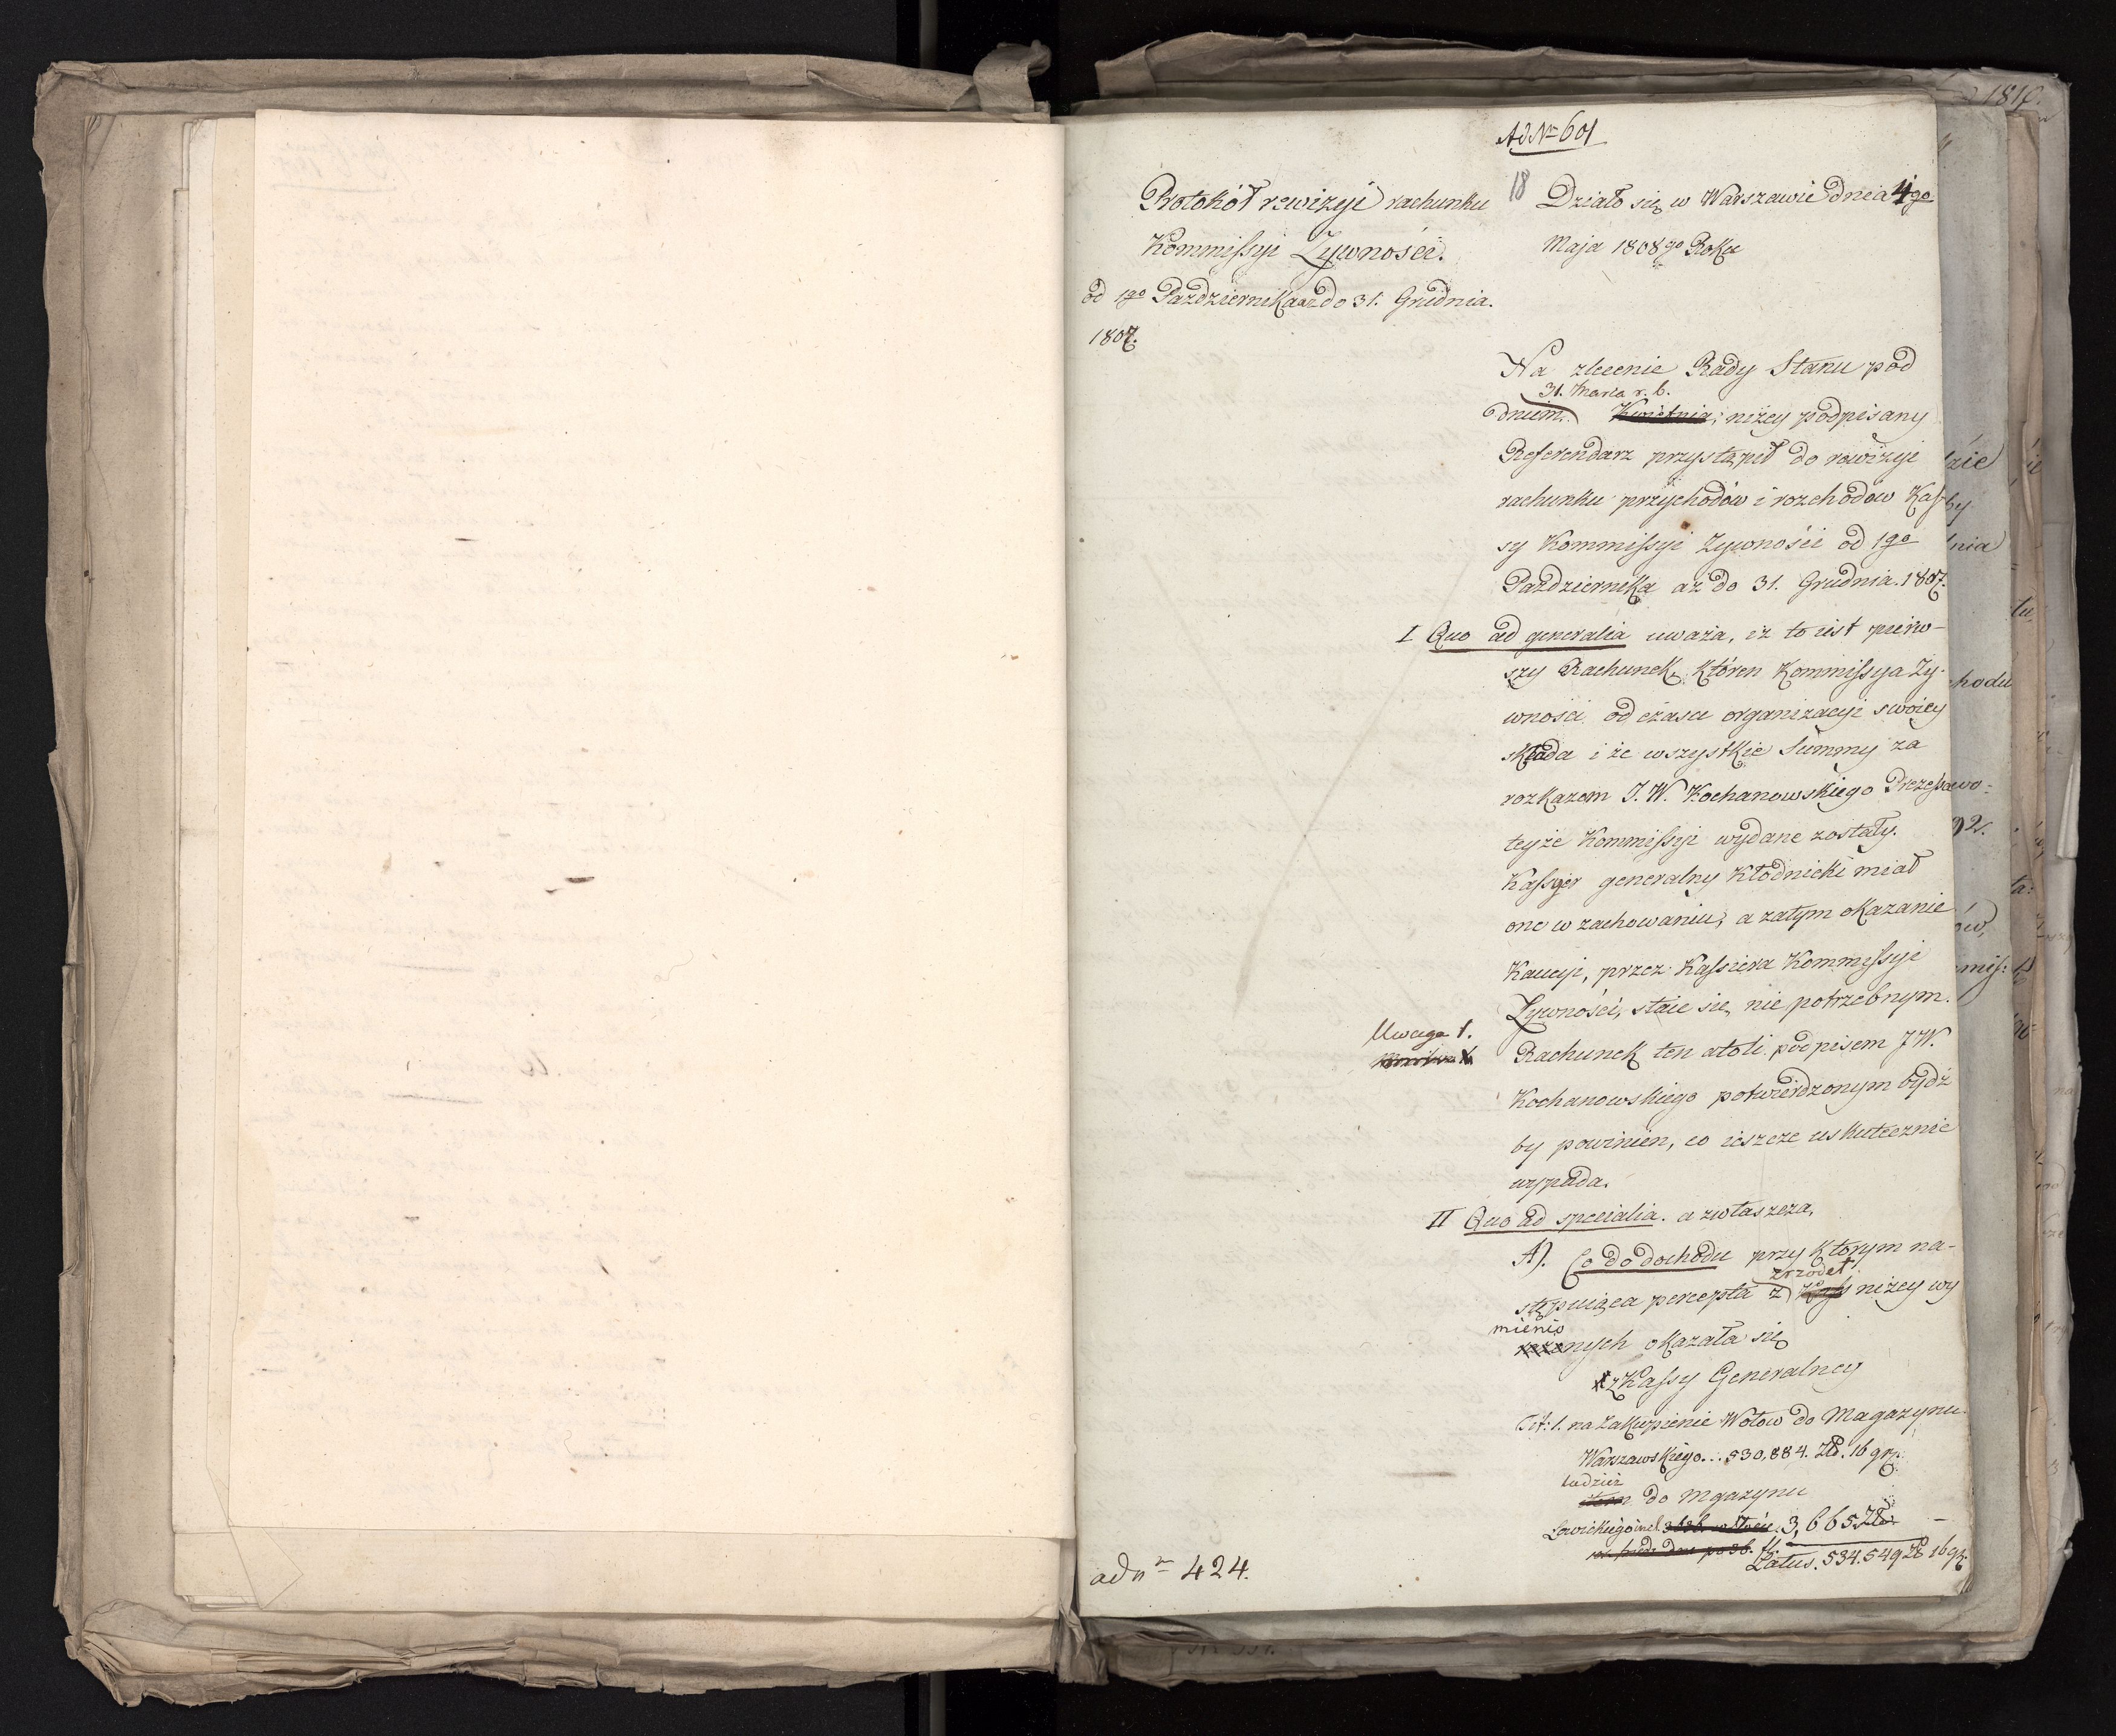 Ad Nm 601
18
Protokół rewizyi rachunku
Kommissyi Żywności.
od 1go Pazdziernika az do 31. Grudnia.
1807.
Działo się w Warszawie dnia 4go
Maja 1808go Roku
Na zlecenie Rady Stanu pod
31. Marca r. b.
dniem Kwietnia; niżey podpisany
Referendarz przystąpił do rewizyi
rachunku przychodów i rozchodow Kas-
sy Kommissyi Zywności od 1go
Pazdziernika aż do 31. Grudnia. 1807.
I Quo ad generalia uważa, iż to iest pierw-
szy Rachunek, któren Kommissya Zy-
wności od czasu organizacyi swoiey
składa i że wszystkie Summy za
rozkazem J. W. Kochanowskiego Prezessa
teyże Kommissyi wydane zostały.
Kassyer generalny Kłodnicki miał
one w zachowaniu, a zatym okazanie
Kaucyi, przez Kassiera Kommissyi
Żywności, staie się nie potrzebnym.
Uwaga 1.
Rachunek ten atoli podpisem JW.
Kochanowskiego potwierdzonym bydź
by powinien, co ieszcze uskutecznić
wypada.
II Quo ad specialia. a zwłaszcza,
A). Co do dochodu przy którym na-
zrzodeł
stępuiąca percepta z Kass niżey wy
mienio
nych okazała się
z Kassy Generalney
Tit: 1. na Zakupienie Wołow do Magazynu
Warszawskiego... 530,884. Zł. 16 gr.
tudzież
item do Mgazynu
Łowickiego 3,665 Zł. —
Latus. 534.549 Zł 16 gr.
ad nm 424.
1810.